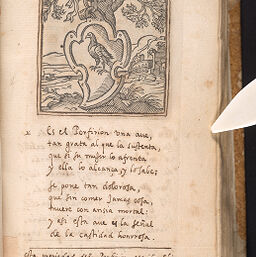 x Es el Porfirion una ave,
tan grata al que la sustenta,
que si su mujer lo afrenta
y ella lo alcança y lo sabe;
se pone tan dolorosa,
que sin comer jamas cosa,
muere con ansia mortal:
y asi esta ave es la señal
de la castidad honrrosa.
esta propiedad del